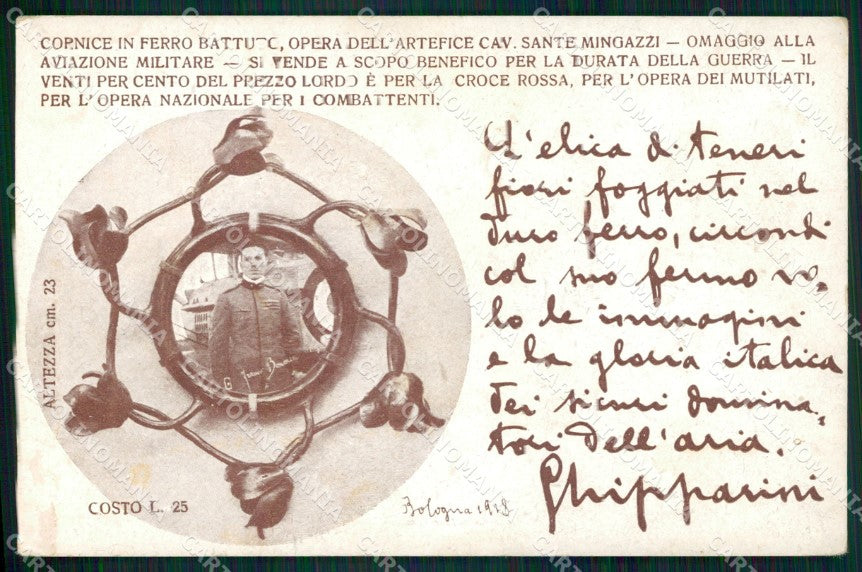 CORNICE IN FERRO BATTUTO, OPERA DELL'ARTEFICE CAV. SANTE MINGAZZI — OMAGGIO ALLA
AVIAZIONE MILITARE — SI VENDE A SCOPO BENEFICO PER LA DURATA DELLA GUERRA — IL
VENTI PER CENTO DEL PREZZO LORDO È PER LA CROCE ROSSA, PER L'OPERA DEI MUTILATI,
PER L'OPERA NAZIONALE PER I COMBATTENTI.
L'elica di teneri
fiori foggiati nel
duro ferro, circondi
col suo fermo vo-
lo le immagini
e la gloria italica
dei sicuri domina-
tori dell'aria.
Ghipparini
ALTEZZA cm. 23
COSTO L. 25
Bologna 1918
CARTOLINOMANIA